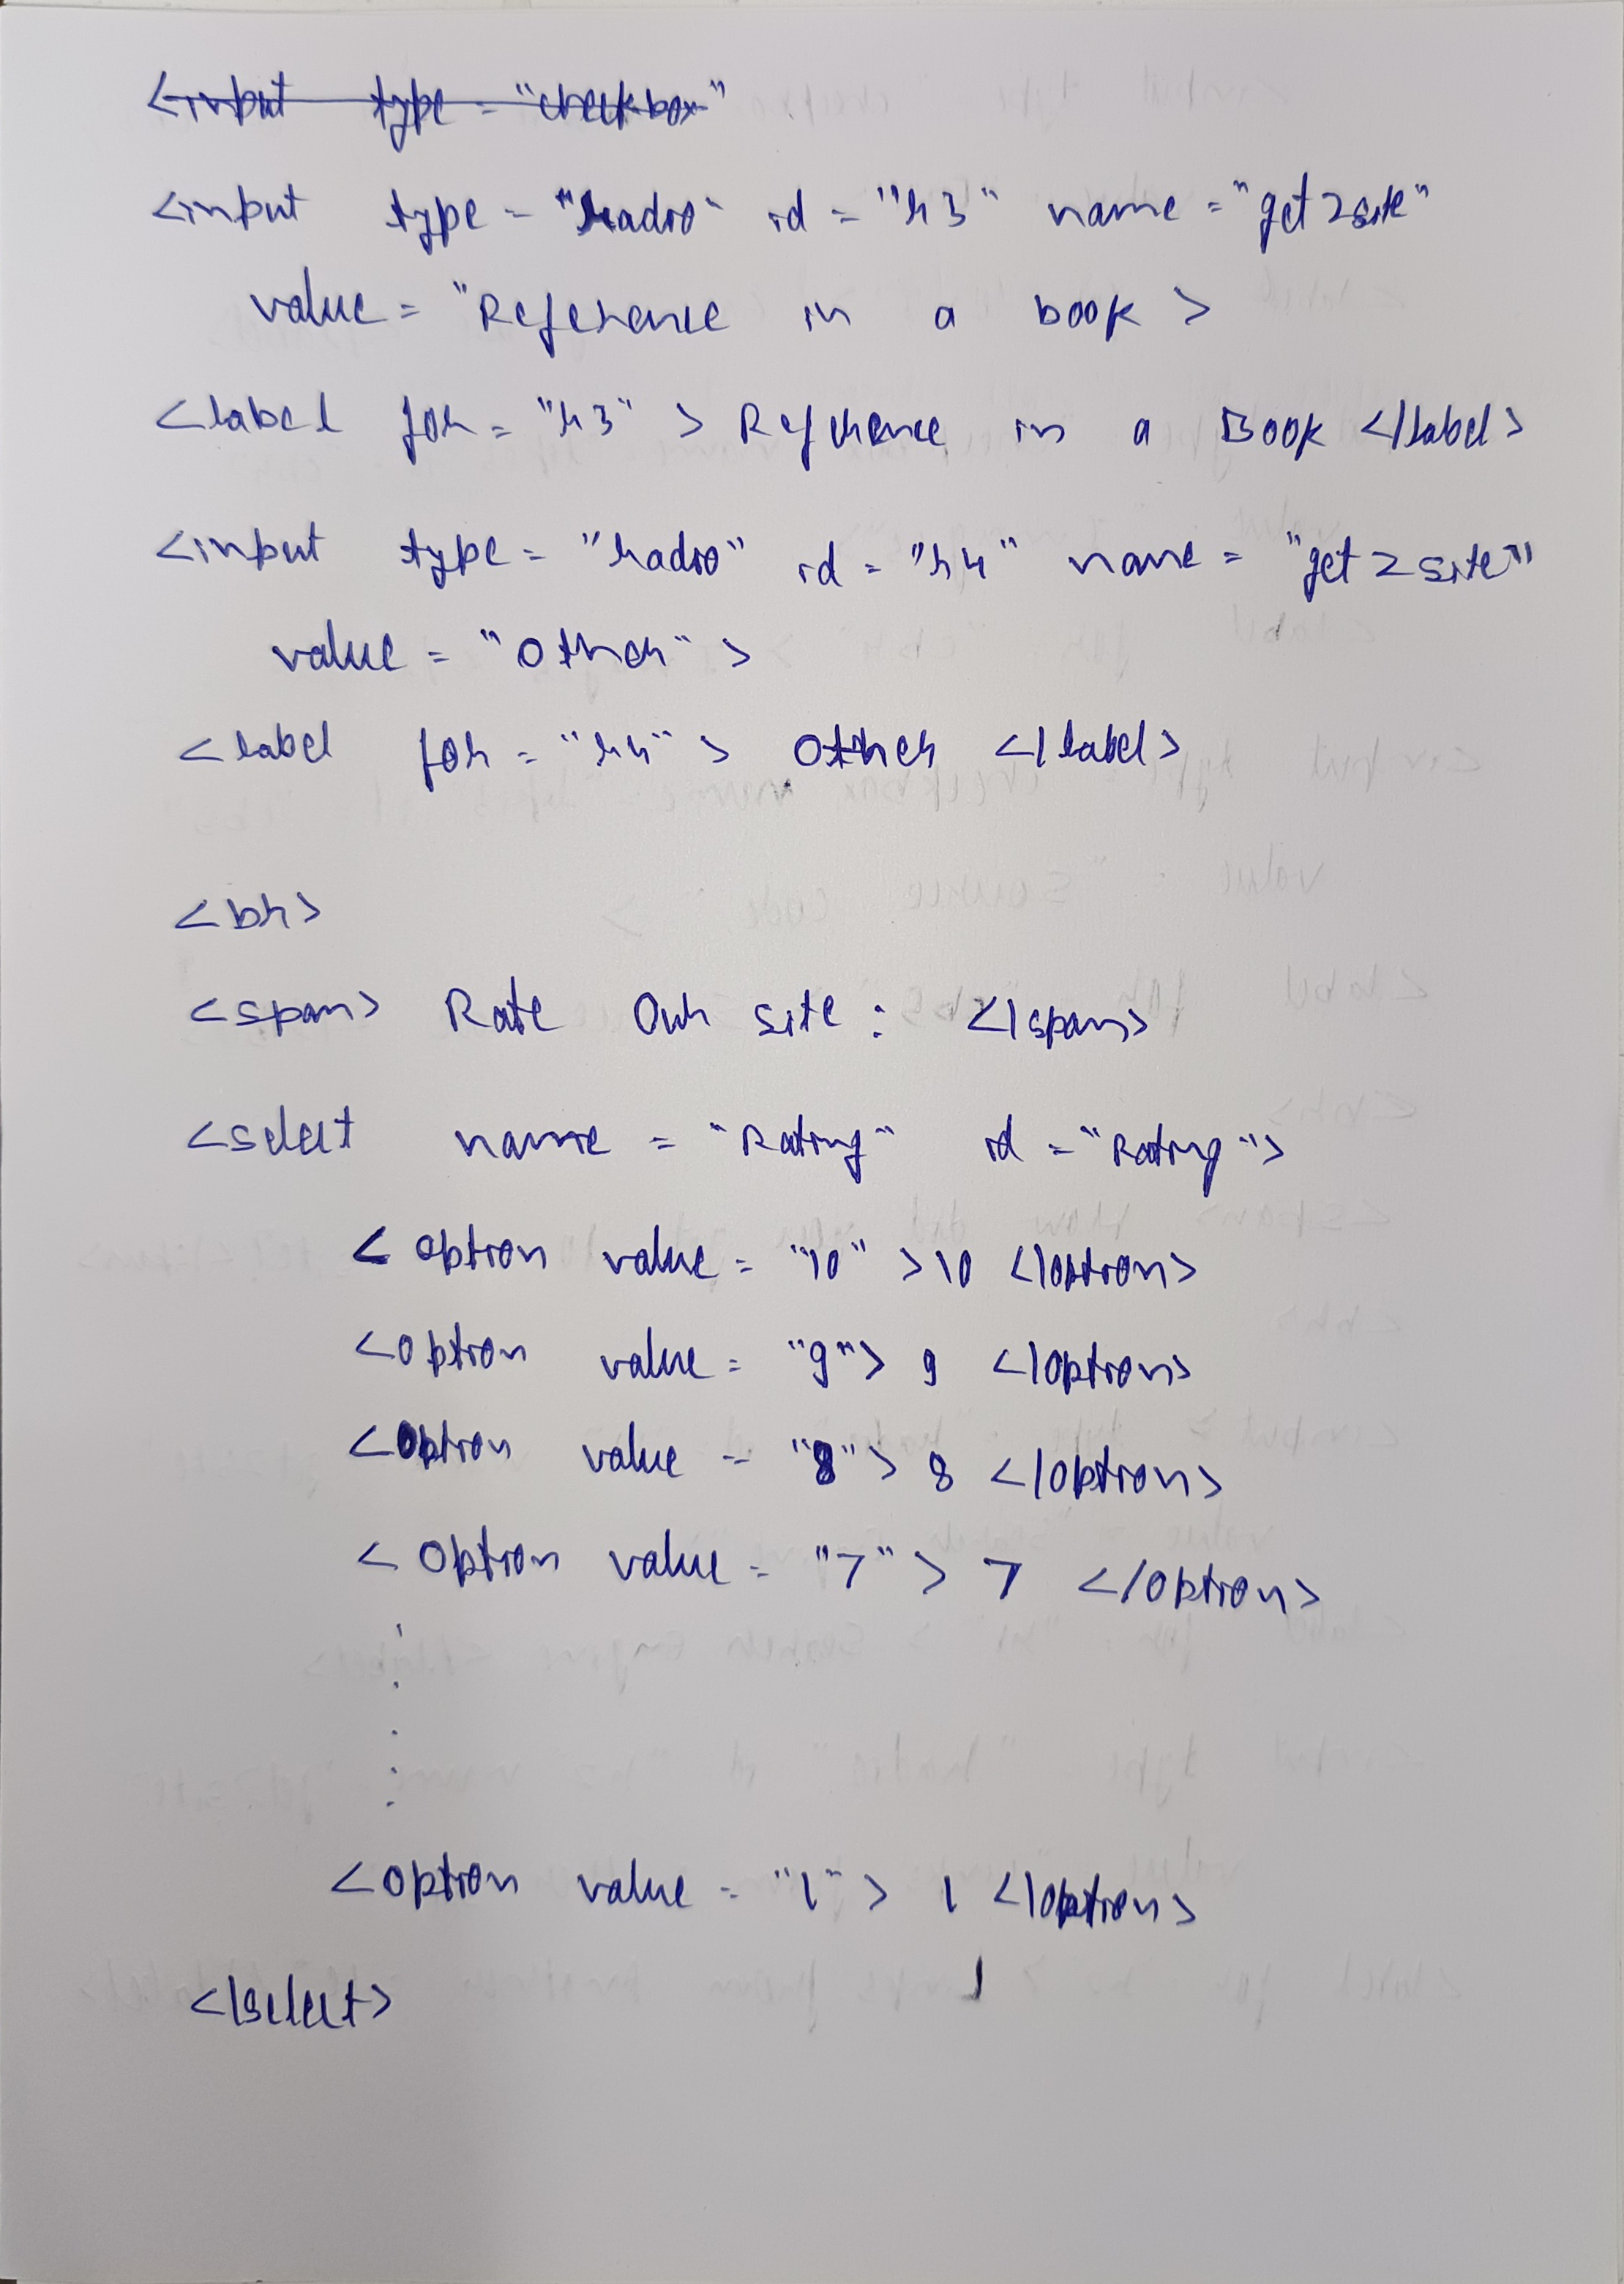 <input type = "checkbox"
<input type = "radio" id = "r3" name = "get2site"
value = "Reference in a book >
<label for = "r3" > Reference in a Book </label>
<input type = "radio" id = "r4" name = "get2site"
value = "Other" >
<label for = "r4" > Other </label>
<br>
<span> Rate Our site : </span>
<select name = "Rating" id = "Rating">
< option value = "10" > 10 </option>
<option value = "9"> 9 </option>
<option value = "8"> 8 </option>
< Option value = "7" > 7 </option>
<option value = "1" > 1 </option>
</select>